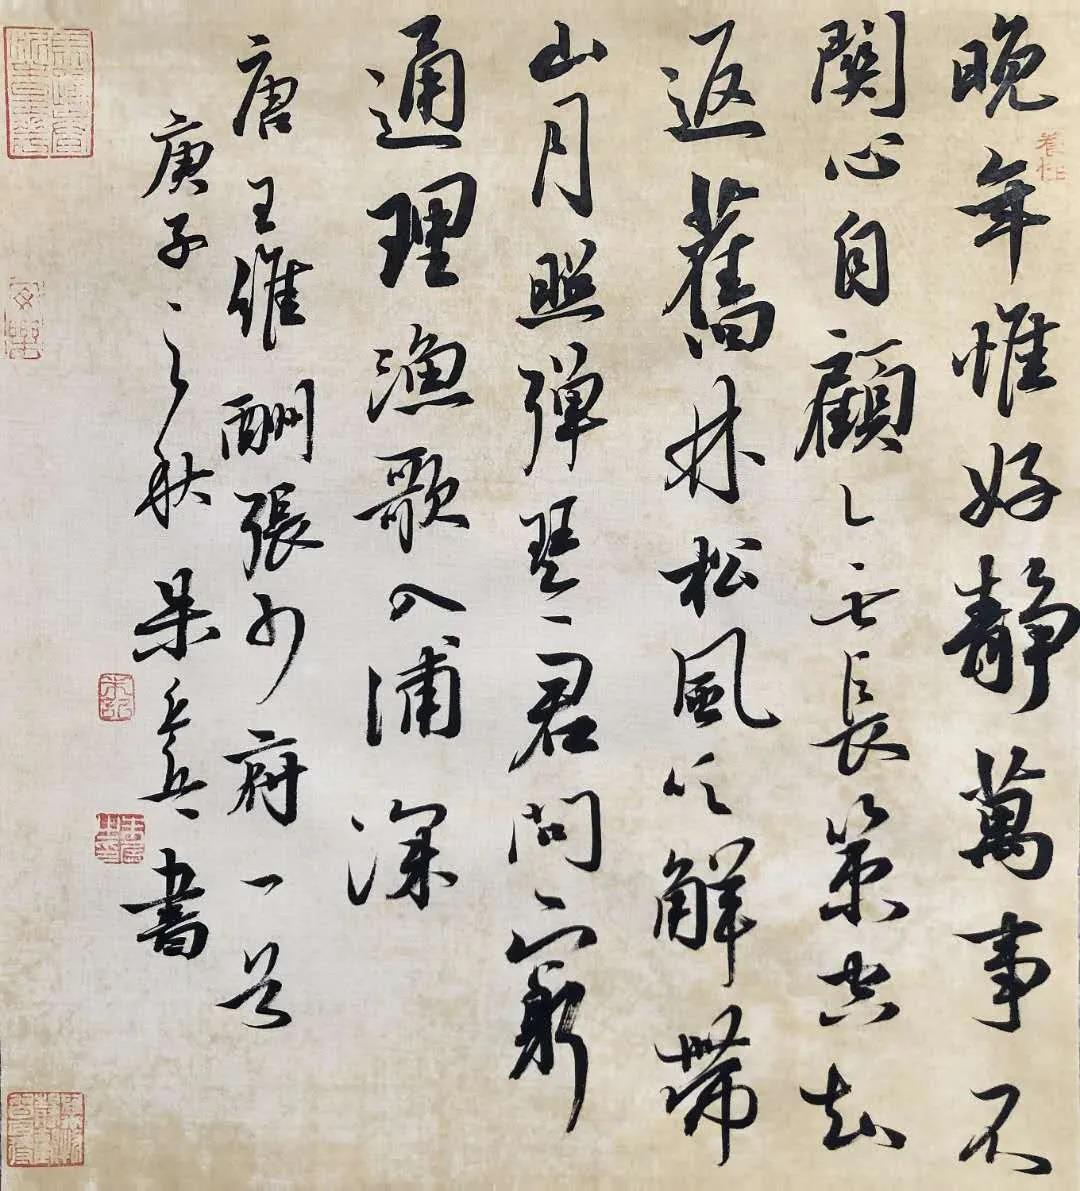 晚年惟好靜萬事不
關心自顧无長策空知
返舊林松風吹解帶
山月照弹琴君問窮
通理漁歌入浦深
唐王維酬張少府一首
庚子之秋兵書
養性